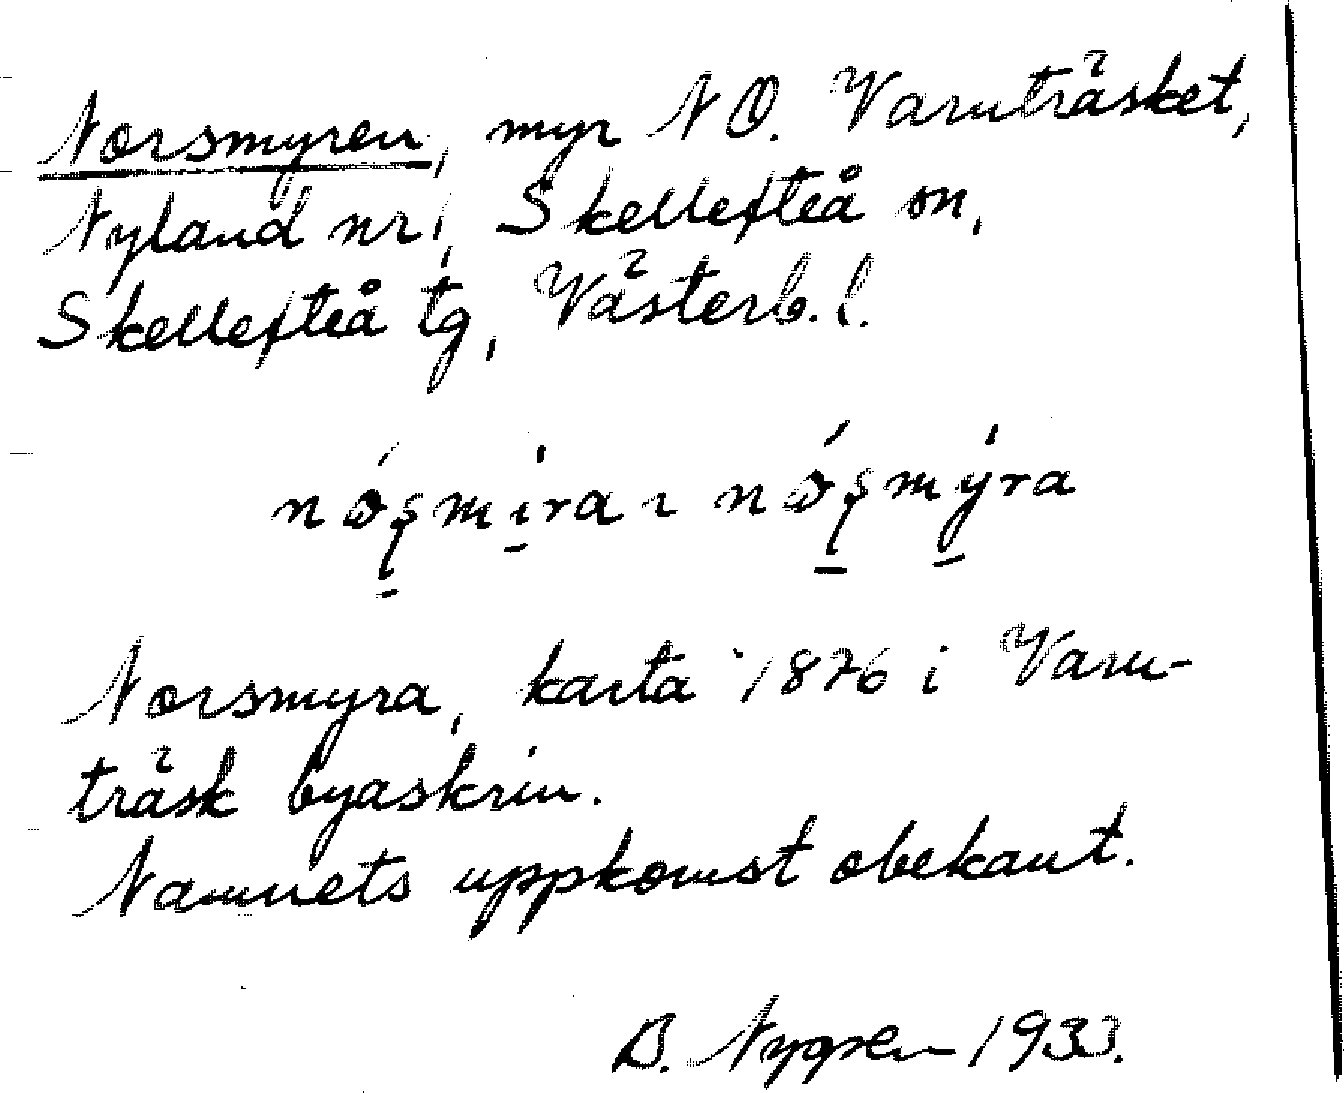 Norsmyren, myr NO. Varuträsket,
Nyland nr 1, Skellefteå sn,
Skellefteå tg, Västerb. l.
Norsmyra, karta 1876 i Varu-
träsk byaskrin.
Namnets uppkomst obekant.
B. Nygren 1933.